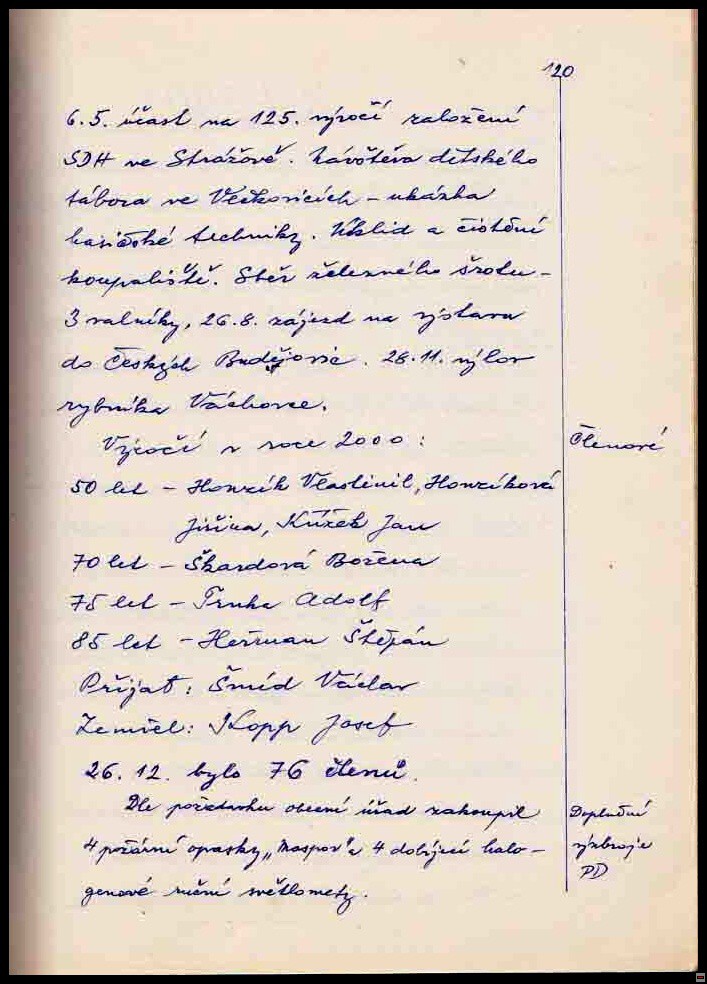 120
6.5. účast na 125. výročí založení
SDH ve Strážově. Návštěva dětského
tábora ve Večkovicích – ukázka
hasičské techniky. Úklid a čistění
koupaliště. Sběr železného šrotu –
3 valníky, 26.8. zájezd na výstavu
do Českých Budějovic. 28.11. výlov
rybníka Váchovce.
Výročí v roce 2000:
Členové
50 let – Honzík Vlastimil, Honzíková
Jiřina, Křížek Jan
70 let – Škardová Božena
75 let – Trnka Adolf
85 let – Heřman Štěpán
Přijat: Šmíd Václav
Zemřel: Kopp Josef
26.12. bylo 76 členů.
Dle požadavku obecní úřad zakoupil
Doplnění
4 požární opasky „Maspov" a 4 dobíjecí halo-
výzbroje
PD
genové ruční světlomety.